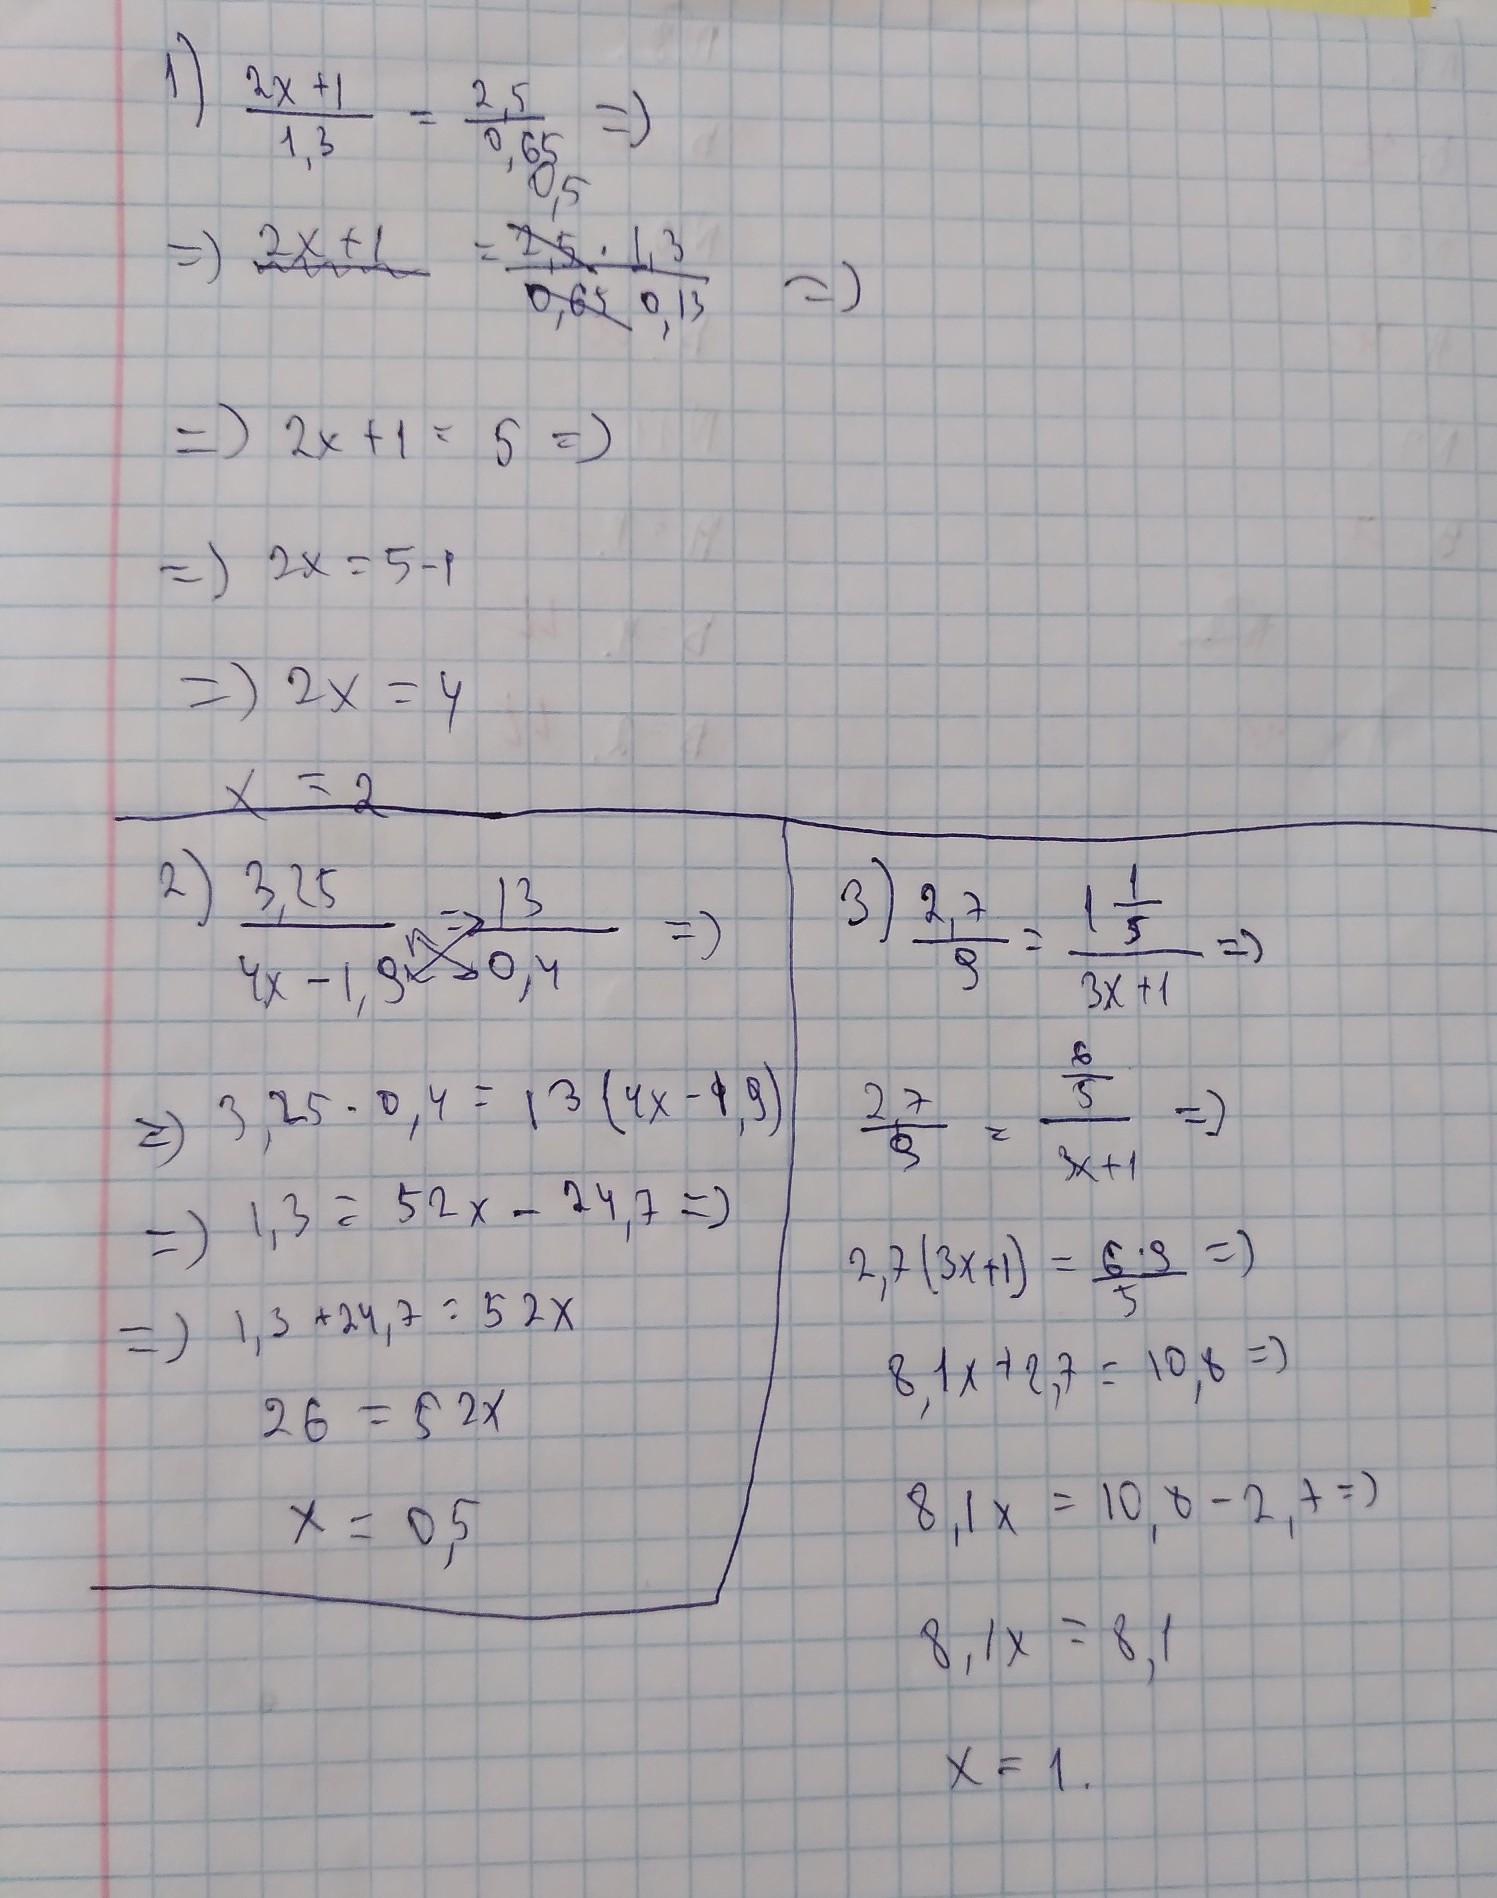 1) (2x+1)/1,3 = 2,5/0,65 =>
0,5
=> 2x+1 = (2,5 · 1,3)/(0,65 0,13) =>
=> 2x+1 = 5 =>
=> 2x = 5-1
=> 2x = 4
x = 2
2) 3,25/(4x-1,9) = 13/0,4 =>
=> 3,25 · 0,4 = 13(4x-1,9)
=> 1,3 = 52x - 24,7 =>
=> 1,3+24,7 = 52x
26 = 52x
x = 0,5
3) 2,7/9 = (1 1/5)/(3x+1) =>
2,7/9 = (6/5)/(3x+1) =>
2,7(3x+1) = (6·9)/5 =>
8,1x+2,7 = 10,8 =>
8,1x = 10,8-2,7 =>
8,1x = 8,1
x = 1.